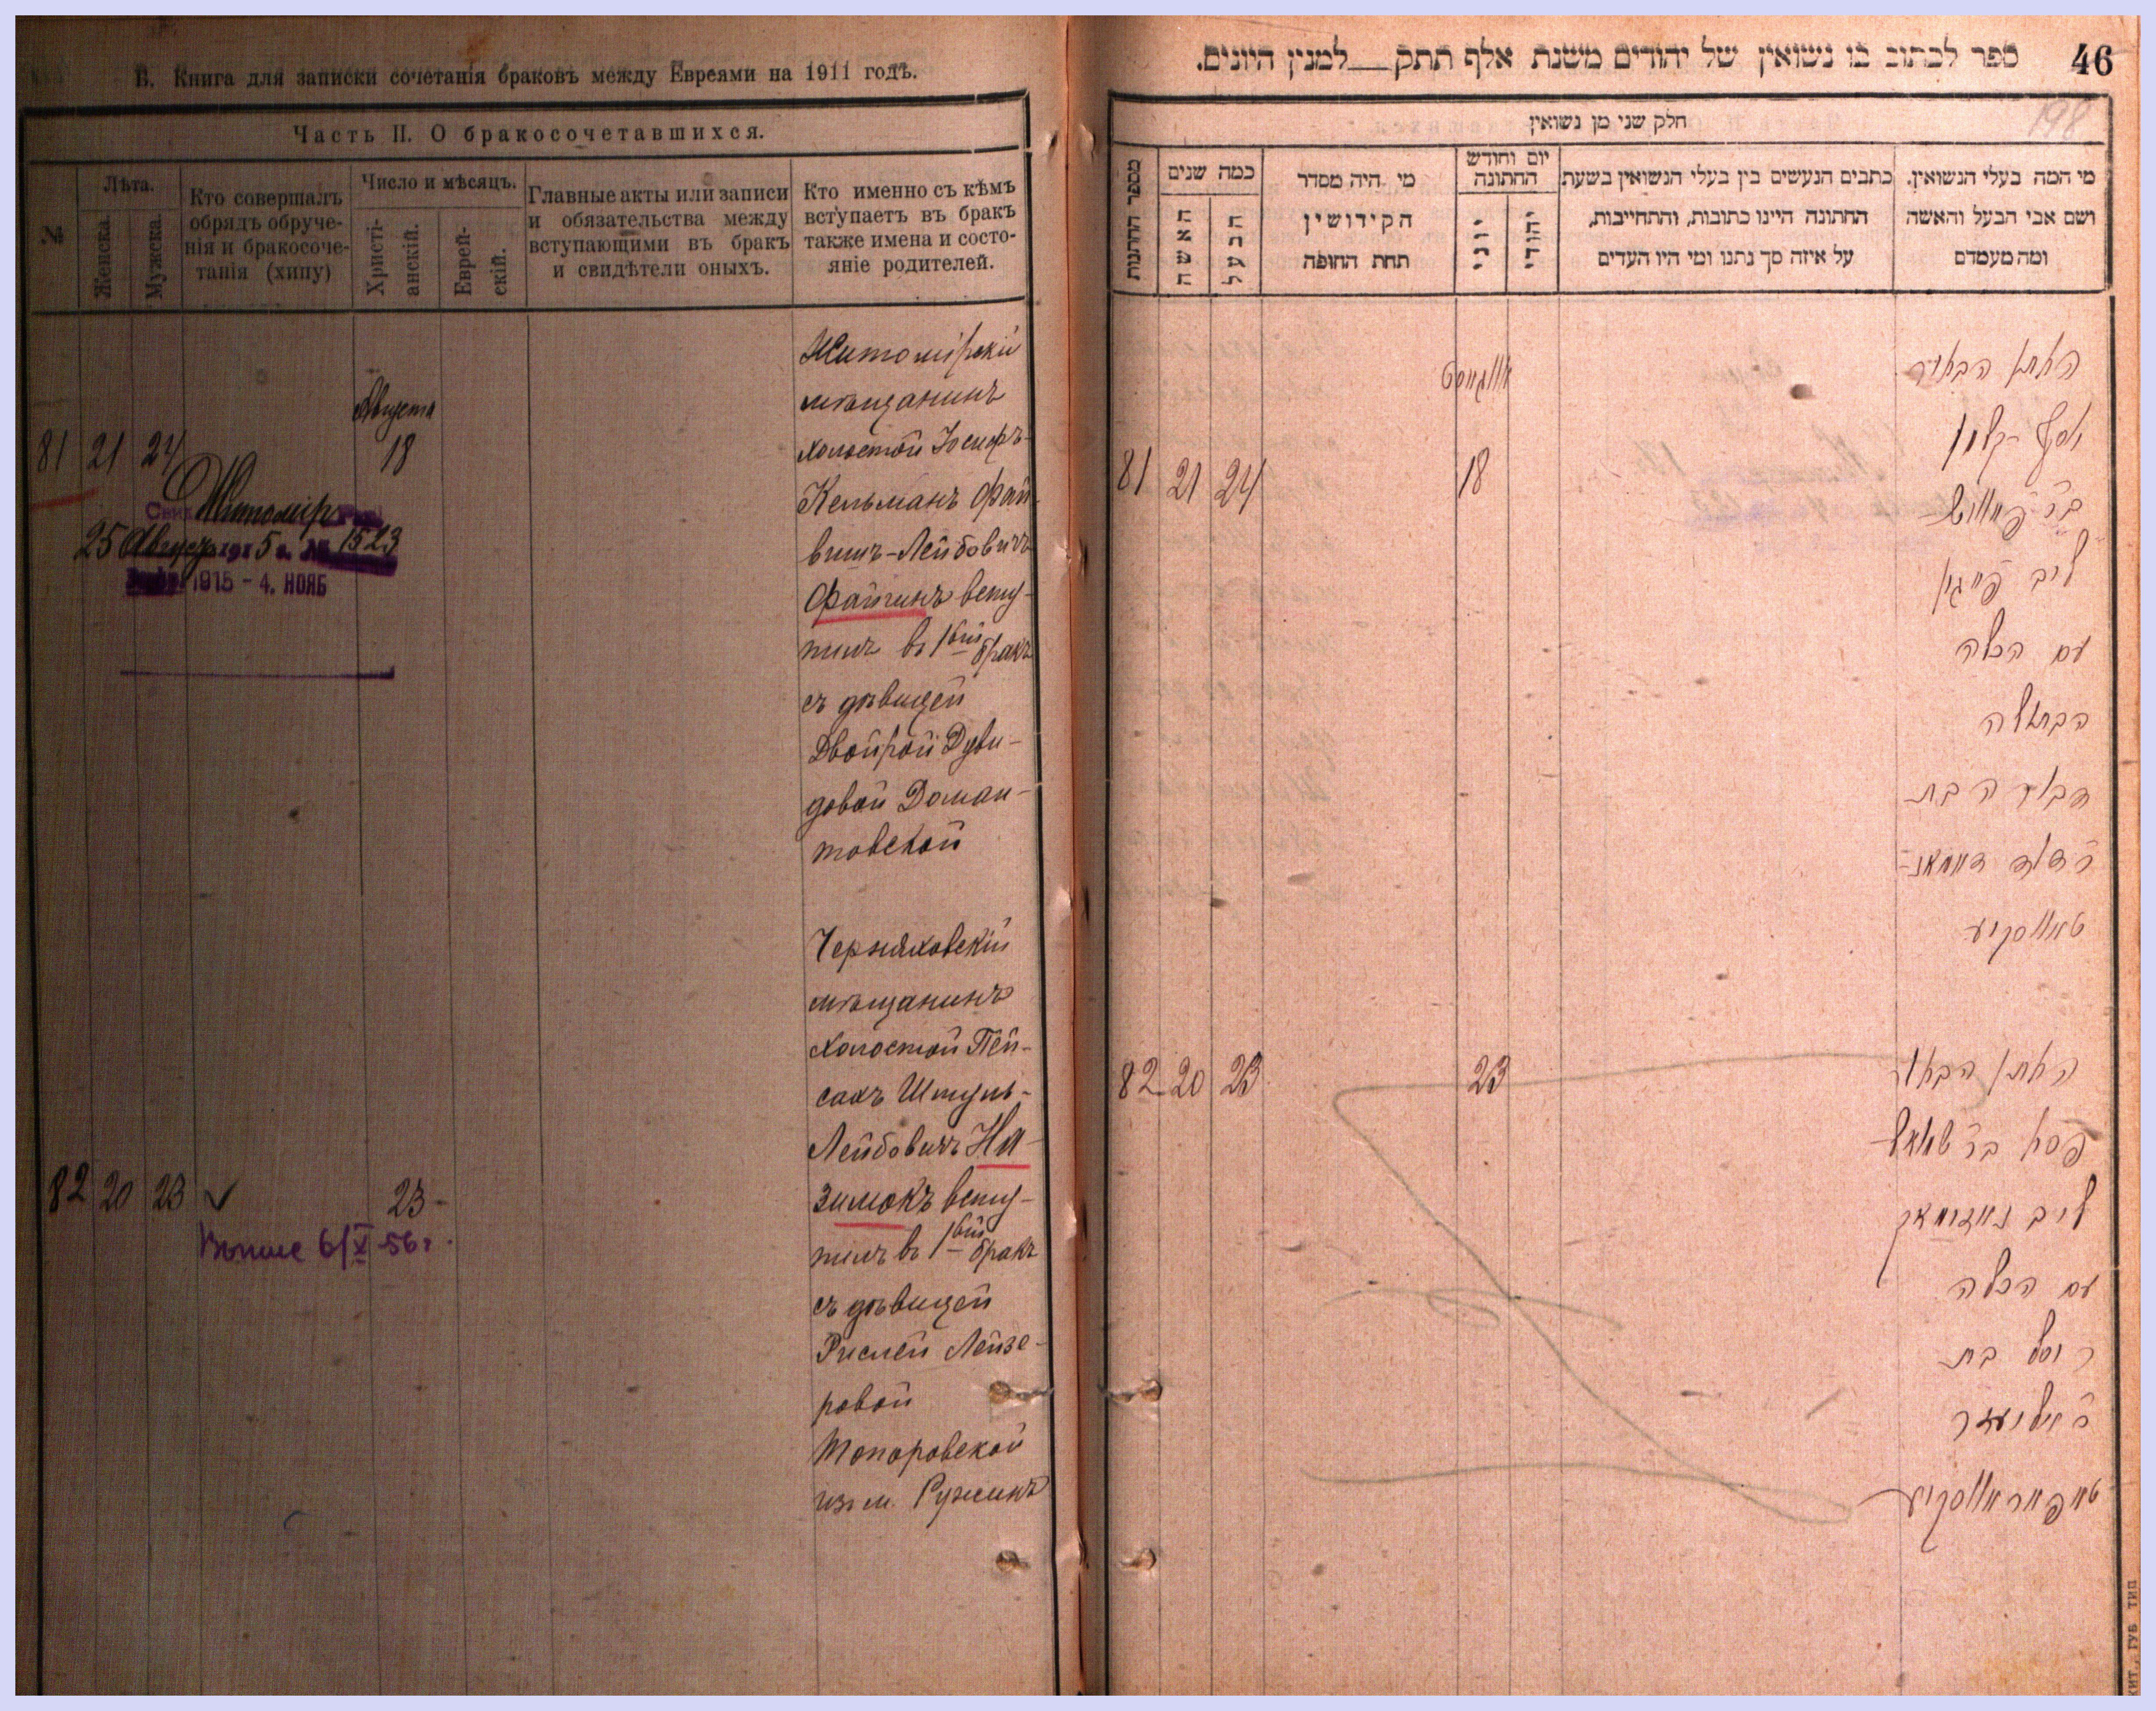 В. Книга для записки сочетанія браковъ между Евреями на 1911 годъ.
Часть II. О бракосочетавшихся.
№
Лѣта.
Женска.
Мужска.
Кто совершалъ
обрядъ обруче-
нія и бракосоче-
танія (хипу)
Число и мѣсяцъ.
Христі-
анскій.
Еврей-
скій.
Главные акты или записи
и обязательства между
вступающими въ бракъ
и свидѣтели оныхъ.
Кто именно съ кѣмъ
вступаетъ въ бракъ
также имена и состо-
яніе родителей.
81 21 24
Августа
18
Житомір
25 Август 1915 г. № 1523
1915 - 4. НОЯБ
Житомірскій
мѣщанинъ
холостой Іосифъ-
Кельманъ Фай-
вишъ-Лейбовичъ
Файгинъ всту-
пилъ въ 1вый бракъ
съ дѣвицей
Двойрой Дуви-
довой Доман-
товской
82 20 23
23
6/X-56г.
Черняховскій
мѣщанинъ
холостой Пей-
сахъ Шмуль-
Лейбовичъ На-
зимокъ всту-
пилъ въ 1вый бракъ
съ дѣвицей
Рислей Лейзе-
ровой
Топоровской
изъ м. Ружинъ
ספר לכתוב בו נשואין של יהודים משנת אלף תתק למנין היונים.
46
198
חלק שני מן נשואין
מספר החתונות
כמה שנים
האשה
הבעל
מי היה מסדר
הקידושין
תחת החופה
יום וחודש
החתונה
יוני
יהודי
כתבים הנעשים בין בעלי הנשואין בשעת
החתונה היינו כתובות, והתחייבות,
על איזה סך נתנו ומי היו העדים
מי המה בעלי הנשואין.
ושם אבי הבעל והאשה
ומה מעמדם
81 21 24
אווגוסט
18
החתן הבחור
יוסף קלמן
בר פייוויש
ליב פייגין
עם הכלה
הבתולה
דבורה בת
ר דוד דאמאנ-
טאווסקיע
82 20 23
23
החתן הבחור
פסח בר שמואל
ליב נאזימאק
עם הכלה
ריסל בת
ר אליעזר
טאפאראווסקיע
ЖИТ., ГУБ. ТИП